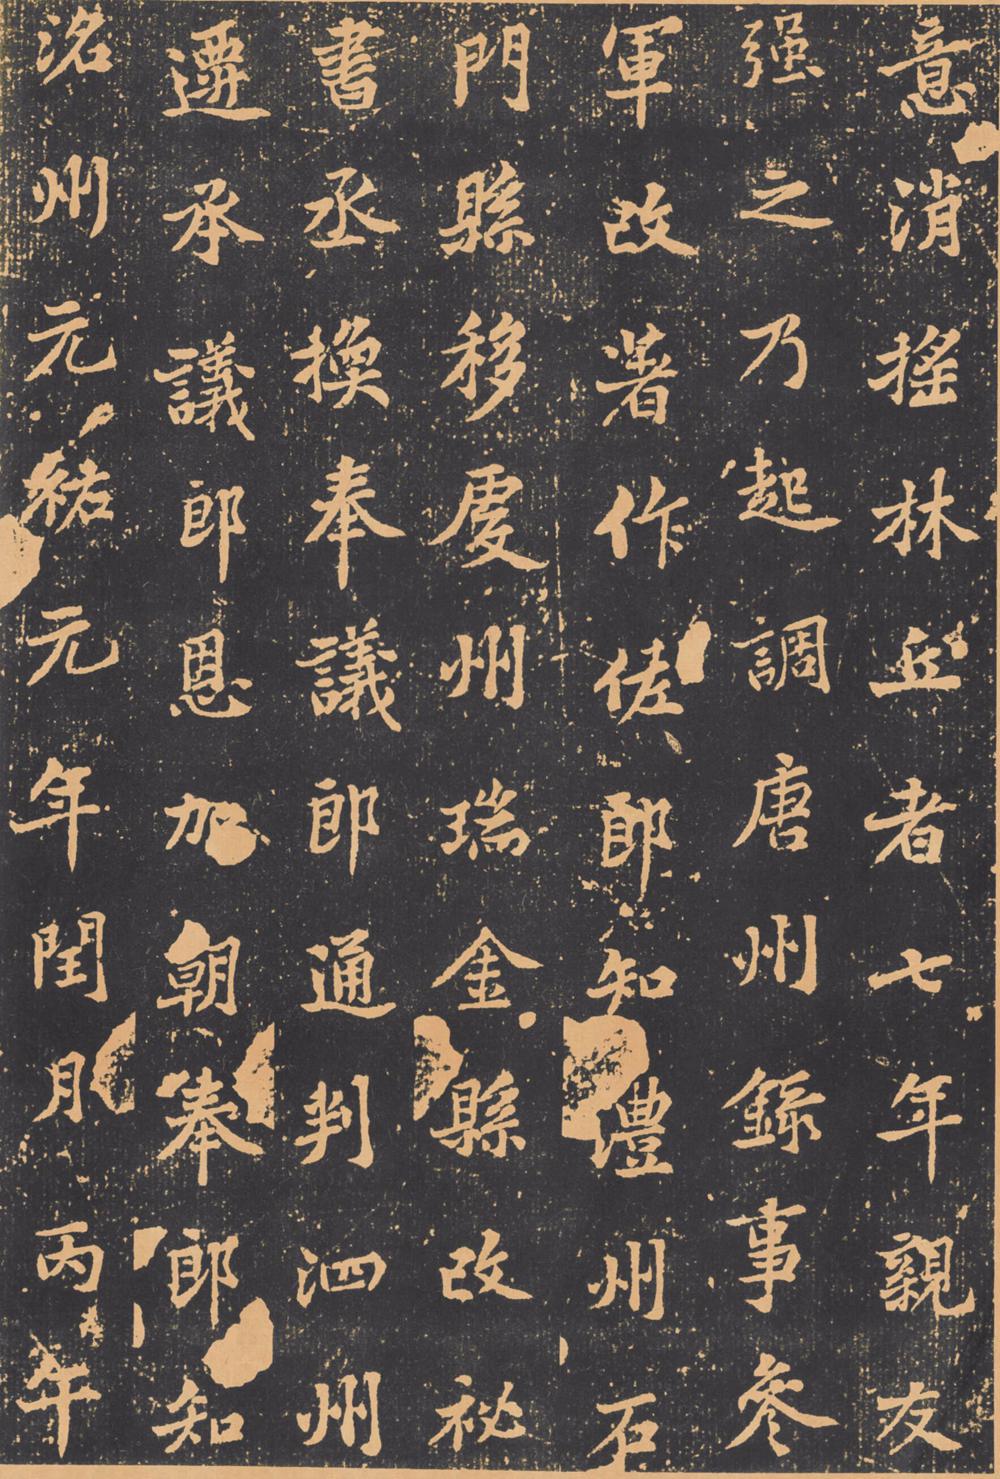 意消搖林丘者七年親友
强之乃起調唐州錄事參
軍改著作佐郎知澧州石
門縣移虔州瑞金縣改祕
書丞換奉議郎通判泗州
遷承議郎恩加朝奉郎知
洺州元祐元年閏月丙午